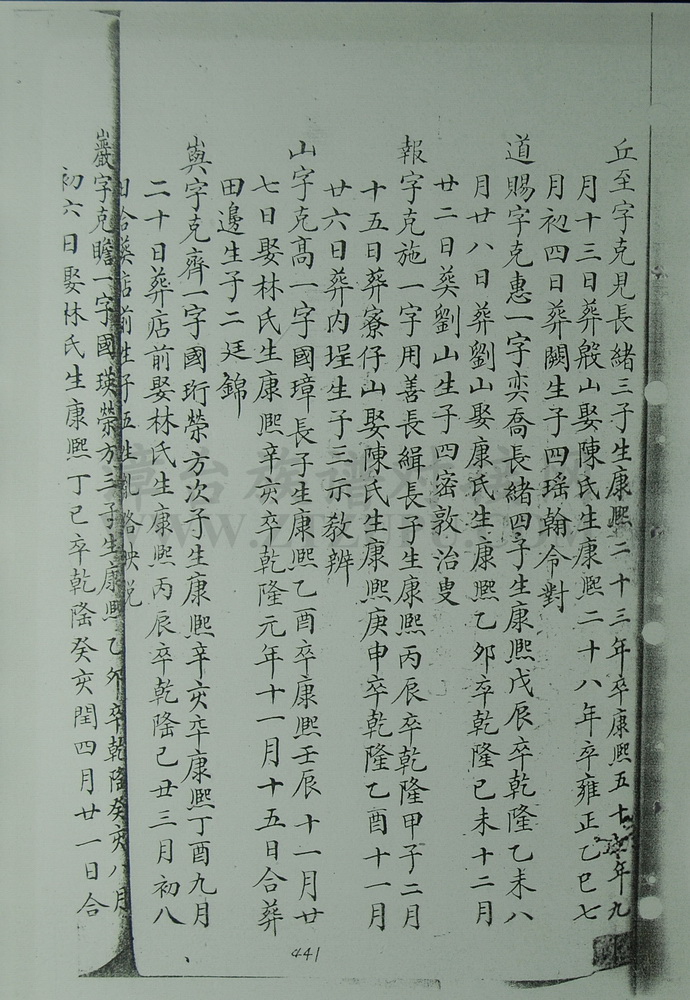 丘至字克見長緒三子生康熙二十三年卒康熙五十年九
月十三日葬殷山娶陳氏生康熙二十八年卒雍正乙巳七
月初四日葬闕生子四瑤翰令對
道賜字克惠一字奕喬長緒四子生康熙戊辰卒乾隆乙未八
月廿八日葬劉山娶康氏生康熙乙夘卒乾隆己未十二月
廿二日葬劉山生子四密敦治叟
報字克施一字用善長緝長子生康熙丙辰卒乾隆甲子二月
十五日葬寮仔山娶陳氏生康熙庚申卒乾隆乙酉十一月
廿六日葬內埕生子三示教辨
山字克高一字國璋長子生康熙乙酉卒康熙壬辰十一月廿
七日娶林氏生康熙辛亥卒乾隆元年十一月十五日合葬
田邊生子二廷錦
嶼字克齊一字國珩榮方次子生康熙辛亥卒康熙丁酉九月
二十日葬店前娶林氏生康熙丙辰卒乾隆己丑三月初八
日合葬店前生子五生
巖字克瞻一字國瑛榮方三子生康熙乙夘卒乾隆癸亥八月
初六日娶林氏生康熙丁巳卒乾隆癸亥閏四月廿一日合
441